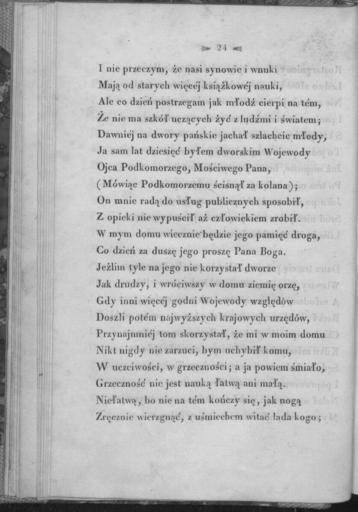 24
I nie przeczym, że nasi synowie i wnuki
Mają od starych więcéj książkowéj nauki,
Ale co dzień postrzegam jak młódź cierpi na tém,
Że nie ma szkół uczących żyć z ludźmi i światem;
Dawniéj na dwory pańskie jachał szlachcic młody,
Ja sam lat dziesięć byłem dworskim Wojewody
Ojca Podkomorzego, Mościwego Pana,
(Mówiąc Podkomorzemu ścisnął za kolana);
On mnie radą do usług publicznych sposobił,
Z opieki nie wypuścił aż człowiekiem zrobił.
W mym domu wiecznie będzie jego pamięć droga,
Co dzień za duszę jego proszę Pana Boga.
Jeżlim tyle na jego nie korzystał dworze
Jak drudzy, i wróciwszy w domu ziemię orzę,
Gdy inni więcéj godni Wojewody względów
Doszli potém najwyższych krajowych urzędów,
Przynajmniéj tom skorzystał, że mi w moim domu
Nikt nigdy nie zarzuci, bym uchybił komu,
W uczciwości, w grzeczności; a ja powiem śmiało,
Grzeczność nie jest nauką łatwą ani małą.
Niełatwą, bo nie na tém kończy się, jak nogą
Zręcznie wierzgnąć, z uśmiechem witać lada kogo;